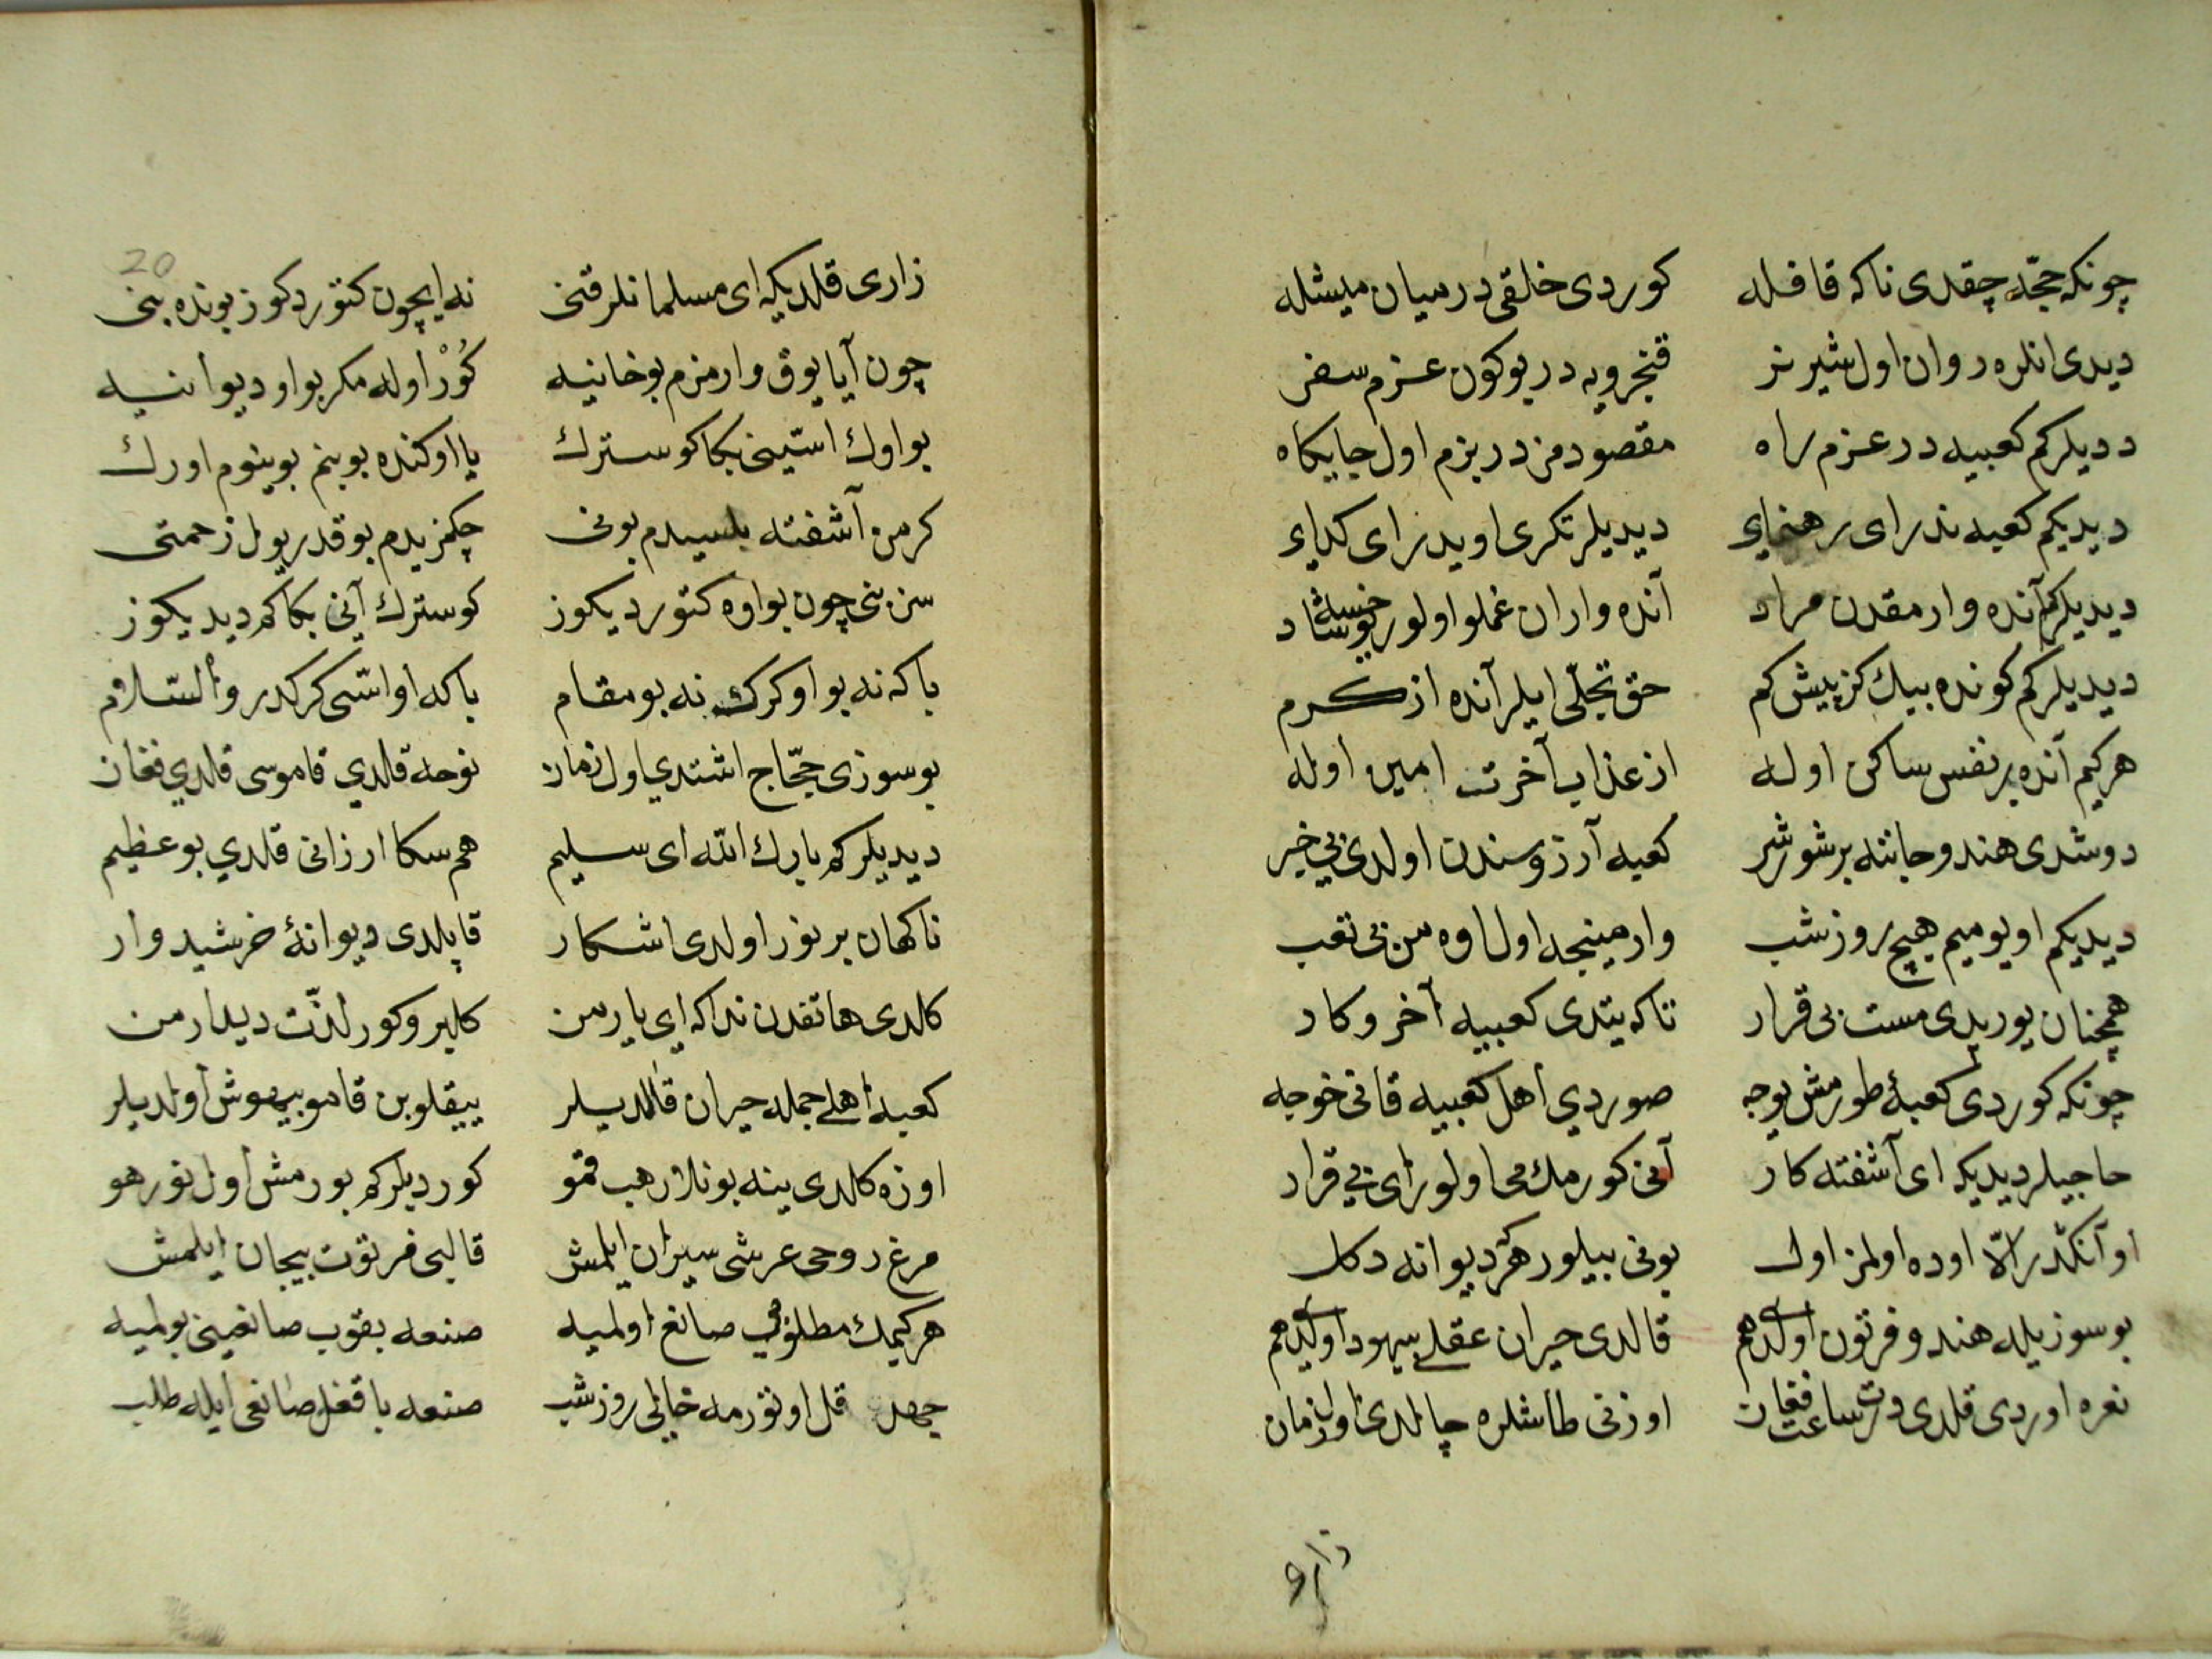 چونكه حجّه چقدی ناكه قافله كوردی خلقی در میان مشله
دیدی انلره روان اول شیر نر قنجرویه در بوكون عزم سفر
ددیلركم كعبیه در عزم راه مقصودمز در بزم اول جایكاه
دیدیكم كعبه ندر ای رهنمای دیدیلر تكری اویدر ای كدای
دیدیلركم آنده وار مقدن مراد آنده واران غملو اولور خوشاد
دیدیلركم كونده بیك كز بیش كم حق تجلّی ایلر آنده از كرم
هركیم آنده بر نفس ساكن اوله از عذاب آخرت امین اوله
دوشدی هندو جاننه بر شور شر كعبه آرزوسندن اولدی بی خبر
دیدیكم اویومیم هیچ روز شب وارمینجه اول اوه من بی تعب
همچنان یوریدی مست بی قرار تاكه یتدی كعبیه آخر وكار
چونكه كوردی كعبهٔ طورمش یوجه صوردی اهل كعبیه قانی خوجه
حاجیلر دیدیكه ای آشفته كار آنی كورمك می اولور ای بی قرار
او آنكدر الّا اوده اولمز اول بونی بیلور هر دیوانه دكل
بو سوزیله هندو فرتون اولدی هم قالدی حیران عقلی بیهود اولدی هم
نعره اوردی قلدی درت ساعت فغان اوزنی طاشلره چالدی اول زمان
زاری
زاری قلدیكه ای مسلمانلر قنی نه ایچون كتوردكوز بونده بنی
چون آیا یوق وارمزم بو خانیه كُوْر اوله مكر بو او دیوانیه
بو اوك استینی بكا كوسترك یا اوكنده بو بنم بوینوم اورك
كر من آشفته بلسیدم بونی چكمزیدم بو قدر یول زحمتی
سز بنی چون بو اوه كتوردیكوز كوسترك آنی بكا كم دیدیكوز
باكه نه بو او كرك نه بو مقام باكه او اسّی كركدر والسّلام
بو سوزی حجّاج اشتدی اول زمان نوحه قلدی قاموسی قلدی فغان
دیدیلركم بارك الله ای سلیم هم سكا ارزانی قلدی بو عظیم
ناكهان بر نور اولدی اشكار قاپلدی دیوانهٔ خرشید وار
كلدی هاتفدن نداكه ای یار من كلبرو كور لذّت دیدار من
كعبه اهلی جمله حیران قالدیلر ییقلوبن قامو بیهوش اولدیلر
اوزه كلدی ینه بونلار هب قمو كوردیلركم بورمش اول نور هو
مرغ روحی عرشی سیران ایلمش قالبی فرتوت بیجان ایلمش
هركیمك مطلوبی صانع اولمیه صنعه بقوب صانعینی بولمیه
جهد قل اوتورمه خالی روز شب صنعه باقغل صانعی ایله طلب
20